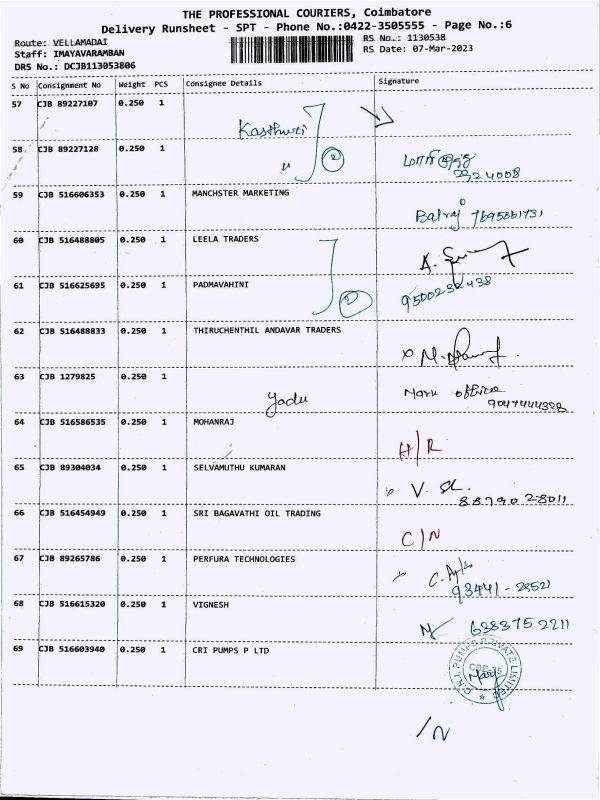 THE PROFESSIONAL COURIERS, Coimbatore
Delivery Runsheet - SPT - Phone No.:0422-3505555 - Page No.:6
Route: VELLAMADAI
Staff: IMAYAVARAMBAN
DRS No.: DCJB113053806
RS No.: 1130538
RS Date: 07-Mar-2023
S No Consignment No Weight PCS Consignee Details Signature
57 CJB 89227107 0.250 1
Kasthuri
58 CJB 89227128 0.250 1
59 CJB 516606353 0.250 1 MANCHSTER MARKETING
Balraj 7695861731
60 CJB 516488805 0.250 1 LEELA TRADERS
61 CJB 516625695 0.250 1 PADMAVAHINI
9500232438
62 CJB 516488833 0.250 1 THIRUCHENTHIL ANDAVAR TRADERS
63 CJB 1279825 0.250 1
Yadu
64 CJB 516586535 0.250 1 MOHANRAJ
H/R
65 CJB 89304034 0.250 1 SELVAMUTHU KUMARAN
88790 28011
66 CJB 516454949 0.250 1 SRI BAGAVATHI OIL TRADING
C/N
67 CJB 89265786 0.250 1 PERFURA TECHNOLOGIES
68 CJB 516615320 0.250 1 VIGNESH
6383752211
69 CJB 516603940 0.250 1 CRI PUMPS P LTD
C.R.I. PUMPS PRIVATE LIMITED
CBE-35